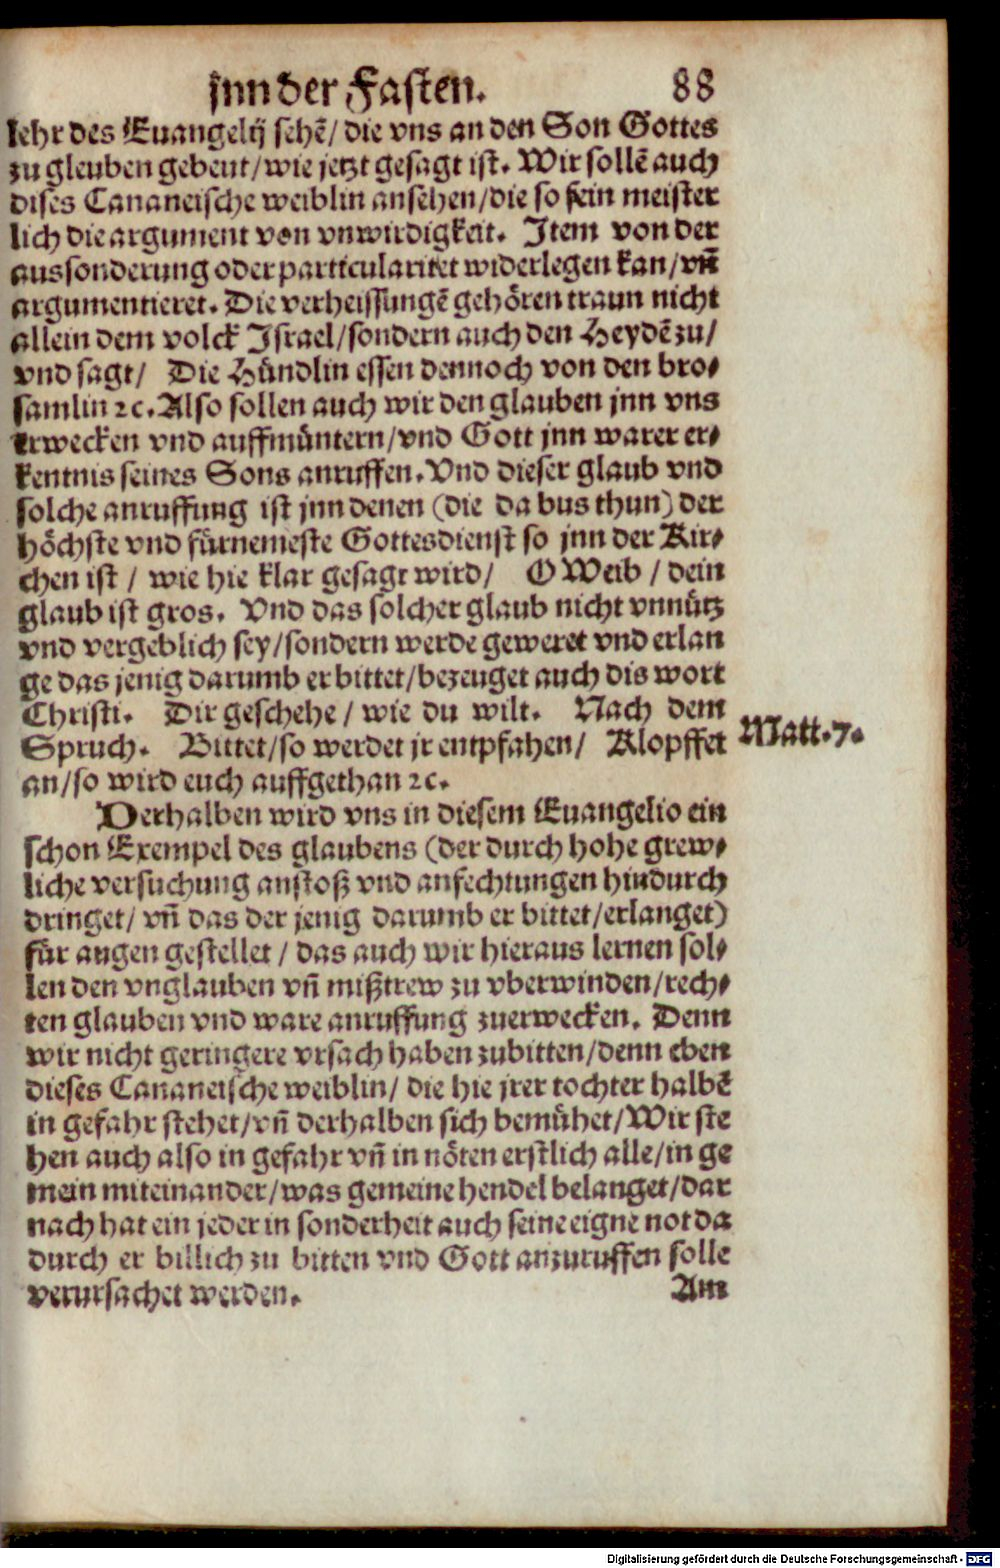 jnn der Fasten. 88
lehr des Euangelij sehē/ die vns an den Son Gottes
zu gleuben gebeut/ wie jetzt gesagt ist. Wir sollē auch
dises Cananeische weiblin ansehen/ die so fein meister
lich die argument von vnwirdigkeit. Item von der
aussonderung oder particularitet widerlegen kan/ vñ
argumentieret. Die verheissungē gehören traun nicht
allein dem volck Israel/ sondern auch den Heydē zu/
vnd sagt/ Die Hündlin essen dennoch von den bro⸗
samlin ꝛc. Also sollen auch wir den glauben jnn vns
erwecken vnd auffmüntern/ vnd Gott jnn warer er⸗
kentnis seines Sons anruffen. Vnd dieser glaub vnd
solche anruffung ist jnn denen (die da bus thun) der
höchste vnd fürnemeste Gottesdienst so jnn der Kir⸗
chen ist / wie hie klar gesagt wird/ O Weib / dein
glaub ist gros. Vnd das solcher glaub nicht vnnütz
vnd vergeblich sey/ sondern werde geweret vnd erlan
ge das jenig darumb er bittet/ bezeuget auch dis wort
Christi. Dir geschehe / wie du wilt. Nach dem
Spruch. Bittet/ so werdet jr entpfahen/ Klopffet
Matt. 7.
an/ so wird euch auffgethan ꝛc.
Derhalben wird vns in diesem Euangelio ein
schon Exempel des glaubens (der durch hohe grew⸗
liche versuchung anstoß vnd anfechtungen hindurch
dringet/ vñ das der jenig darumb er bittet/ erlanget)
für augen gestellet / das auch wir hieraus lernen sol⸗
len den vnglauben vñ mißtrew zu vberwinden/ rech⸗
ten glauben vnd ware anruffung zuerwecken. Denn
wir nicht geringere vrsach haben zubitten/ denn eben
dieses Cananeische weiblin/ die hie jrer tochter halbē
in gefahr stehet/ vñ derhalben sich bemühet/ Wir ste
hen auch also in gefahr vñ in nöten erstlich alle/ in ge
mein miteinander/ was gemeine hendel belanget/ dar
nach hat ein jeder in sonderheit auch seine eigne not da
durch er billich zu bitten vnd Gott anzuruffen solle
verursachet werden. Am
Digitalisierung gefördert durch die Deutsche Forschungsgemeinschaft - DFG